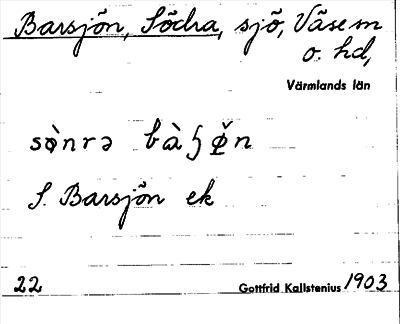 Barsjön, Södra, sjö, Väse sn
o. hd,
Värmlands län
sø̀nrə bàʃø̌n
S. Barsjön ek
22 Gottfrid Kallstenius 1903